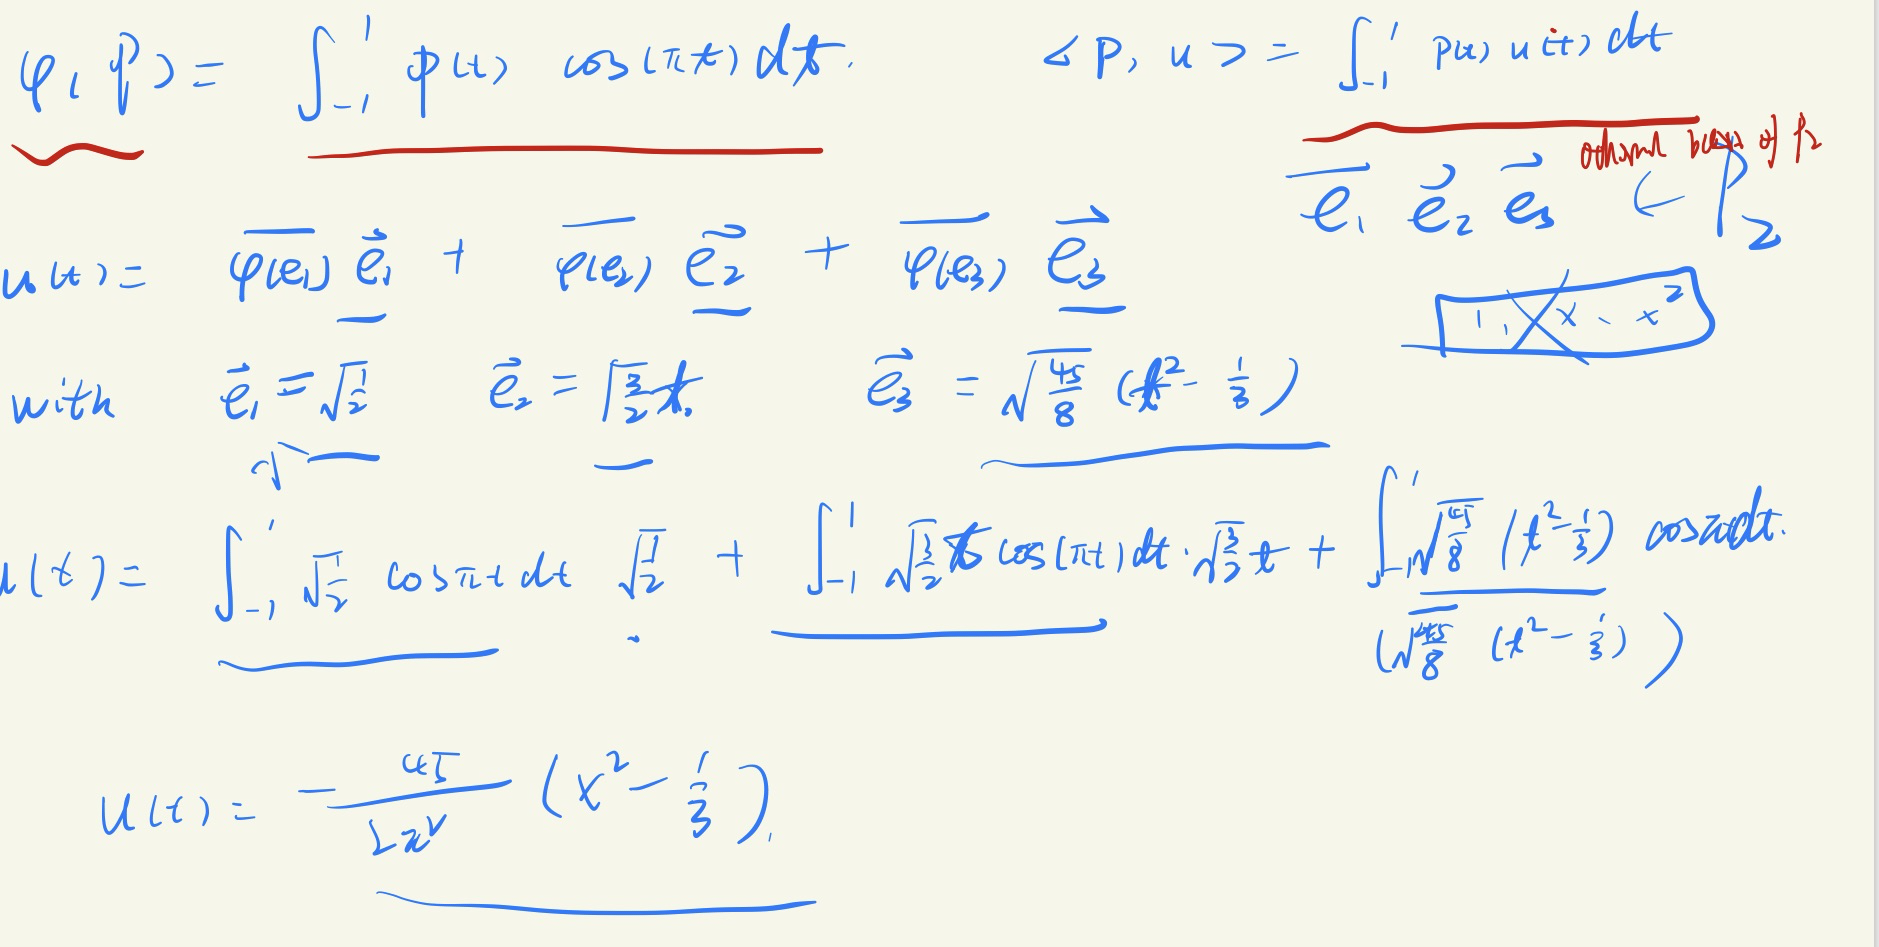 φ, p) = ∫_{-1}^{1} p(t) cos(πt) dt. <p, u> = ∫_{-1}^{1} p(t) u(t) dt
of P₂
e₁ e₂ e₃ ∈ P₂
u(t) = φ(e₁) e₁ + φ(e₂) e₂ + φ(e₃) e₃
1, x, x²
with e₁ = √(1/2) e₂ = √(3/2) t. e₃ = √(45/8) (t² - 1/3)
u(t) = ∫_{-1}^{1} √(1/2) cos πt dt √(1/2) + ∫_{-1}^{1} √(3/2) t cos(πt) dt · √(3/2) t + ∫_{-1}^{1} √(45/8) (t² - 1/3) cos πt dt.
(√(45/8) (t² - 1/3))
u(t) = -45/(2π²) (x² - 1/3).